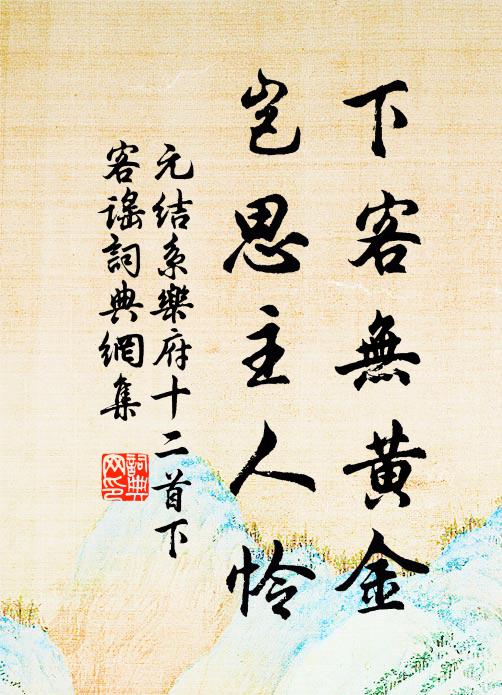 下客無黄金
岂思主人怜
元结系樂府十二首下
客謠詞典網集
詞典
网印